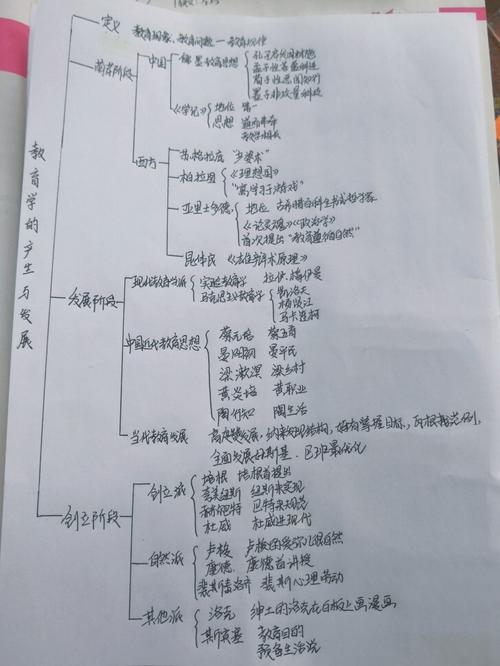 教育学的产生与发展
定义 教育现象、教育问题 — 教育规律
萌芽阶段
中国
儒墨教育思想
孟子性善
荀子性恶
墨子非攻
《学记》
地位 第一
思想
教学相长
西方
苏格拉底 “产婆术”
柏拉图 《理想国》
“寓学习于游戏”
亚里士多德
地位 古希腊百科全书式哲学家
《论灵魂》《政治学》
首次提出“教育遵循自然”
昆体良
发展阶段
现代教育学派
实验教育学 拉伊、梅伊曼
马克思主义教育学
凯洛夫
杨贤江
马卡连柯
中国近代教育思想
蔡元培 蔡五育
晏阳初 晏平民
梁漱溟 梁乡村
黄炎培 黄职业
陶行知 陶生活
当代教育发展 高难赞发展,纳布知结构,
全面发展 巴班最优化
创立阶段
创立派
培根 培根首提出
夸美纽斯 夸斯来实现
赫尔巴特 巴特来规范
杜威 杜威进现代
自然派
卢梭 卢梭的爱弥儿很自然
康德 康德首讲授
裴斯泰洛齐 裴斯心理劳动
其他派
洛克 绅士的洛克在白板上画漫画
斯宾塞 教育目的
预备生活说